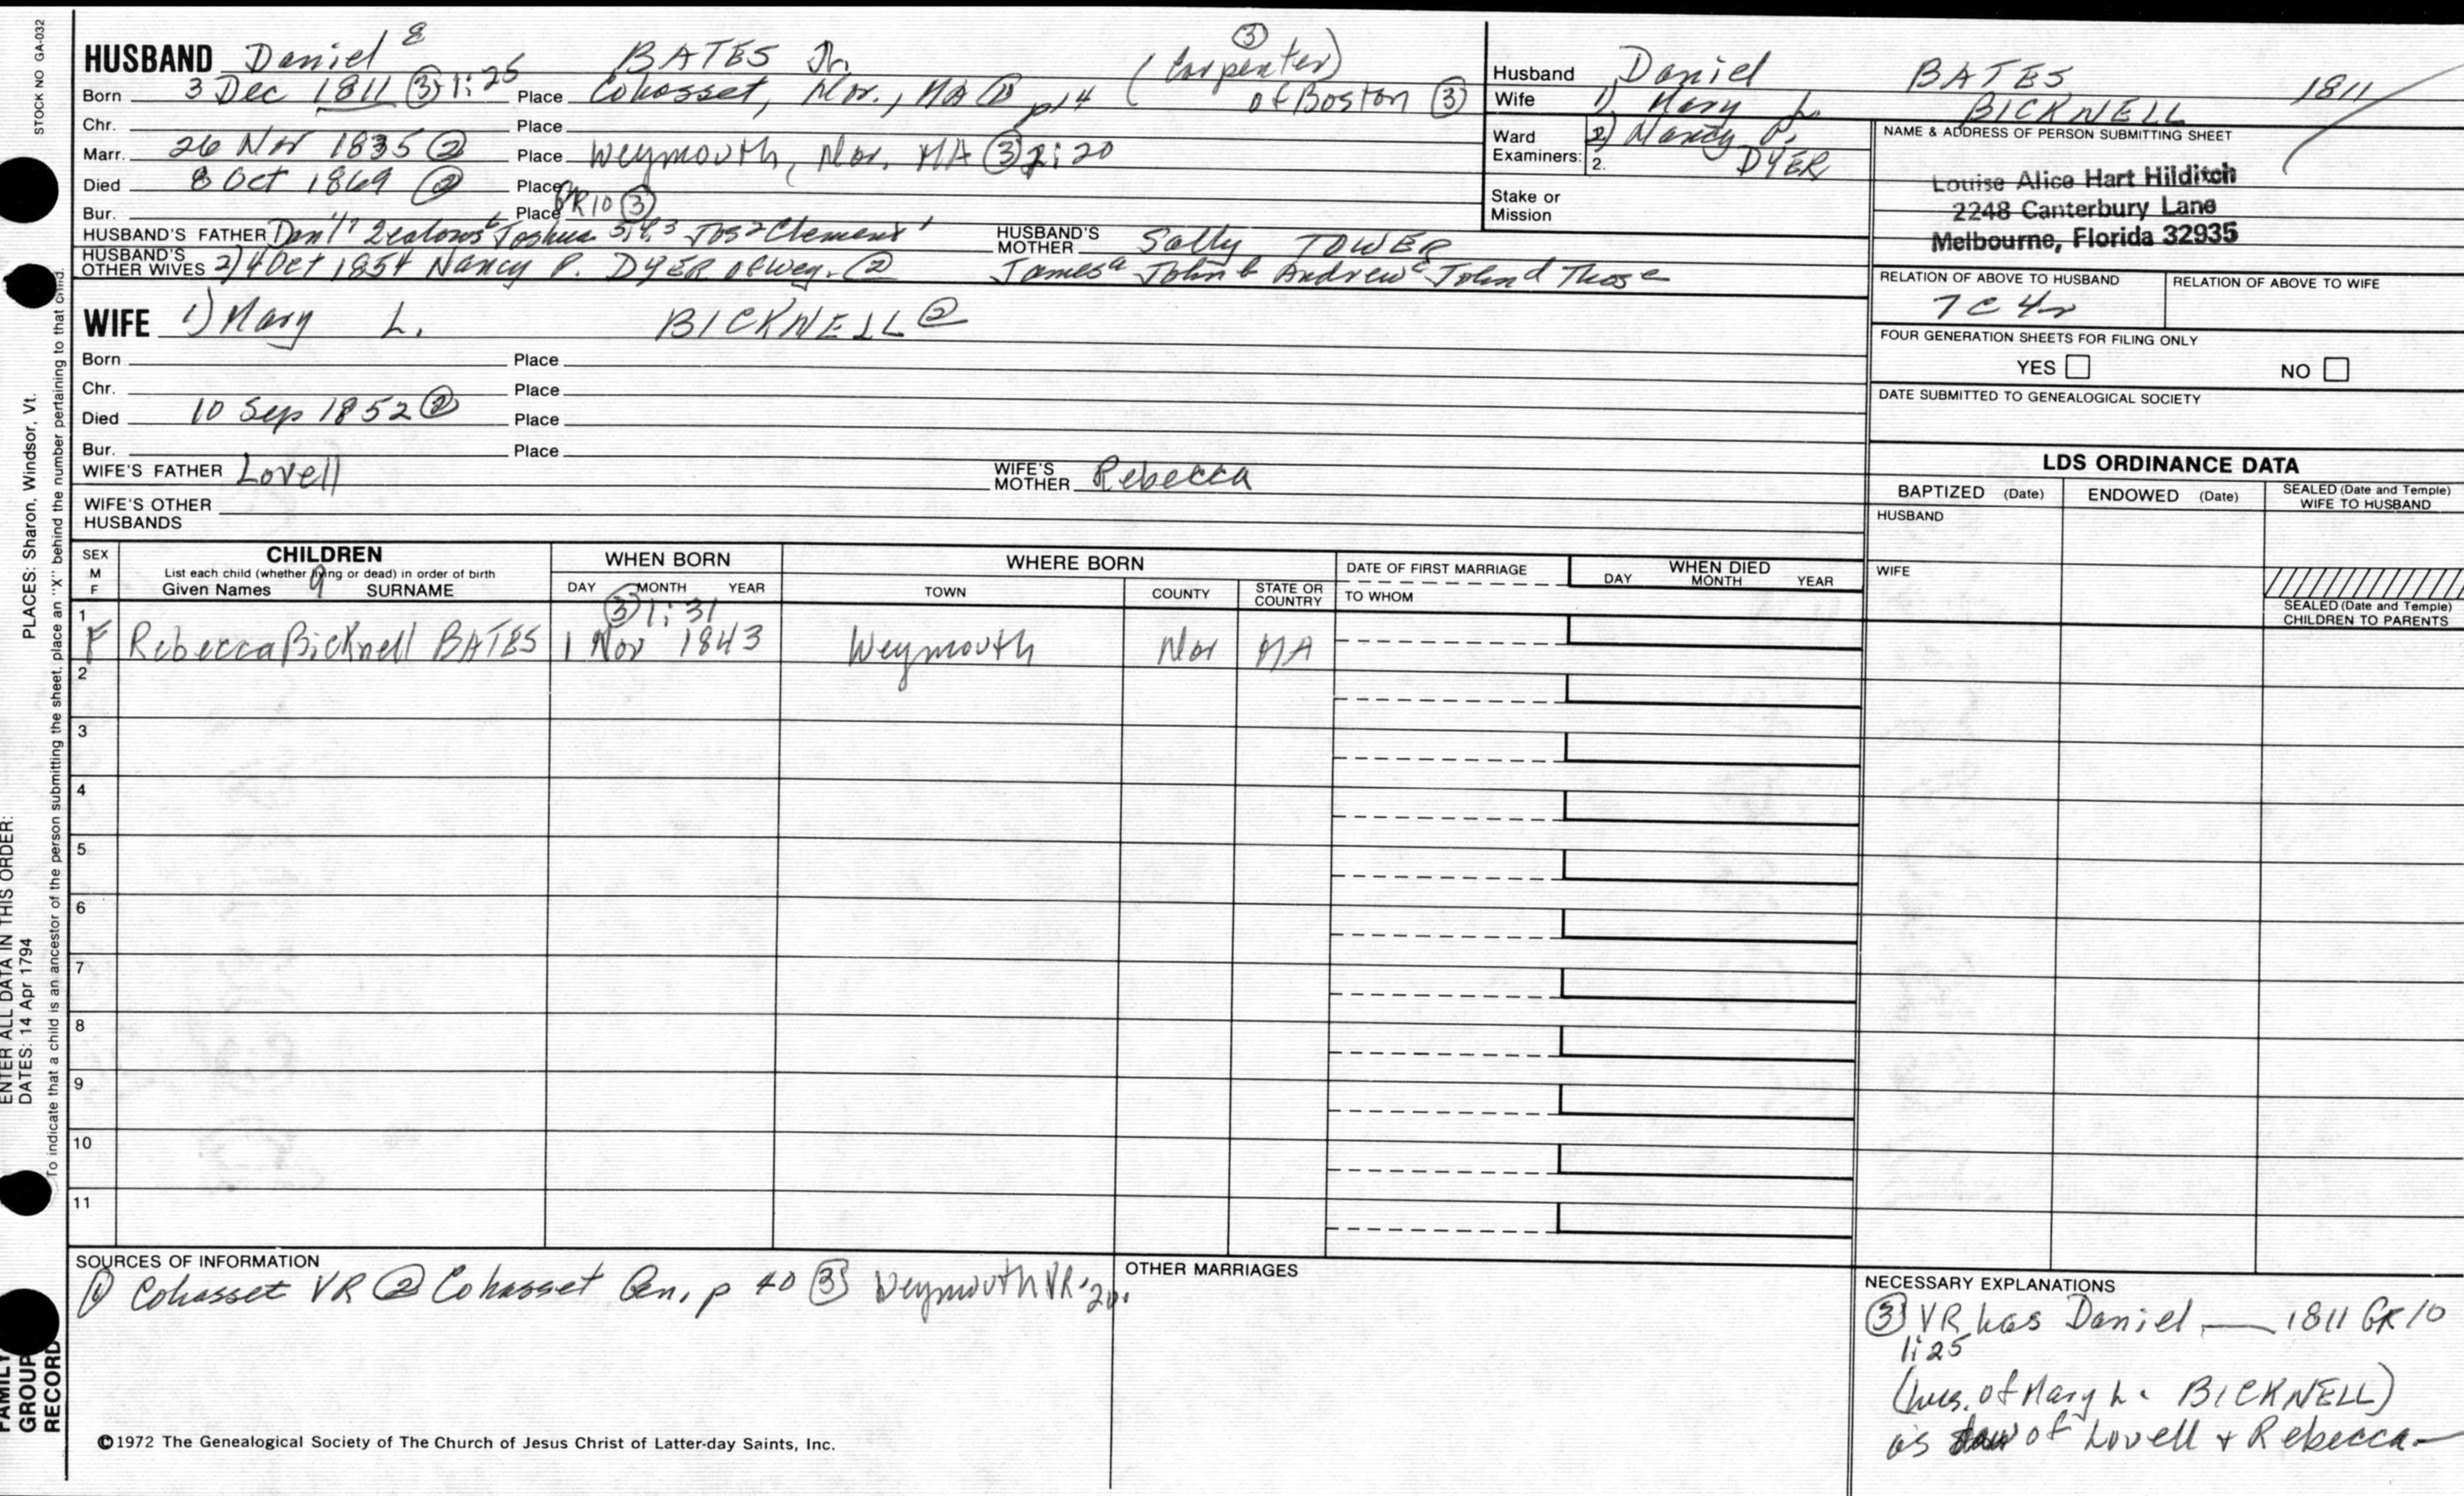 STOCK NO GA-032
HUSBAND Daniel 8 BATES Jr. (Carpenter) ③
Born 3 Dec 1811 ③ 1:25 Place Cohasset, Nor., MA ① p14 of Boston ③
Chr. Place
Marr. 26 Nov 1835 ② Place Weymouth, Nor. MA ③ 2:20
Died 8 Oct 1869 ② Place
Bur. Place GR10 ③
HUSBAND'S FATHER Dan'l 7 Zealous 6 Joshua 5,4,3 Jos 2 Clement 1 HUSBAND'S MOTHER Sally TOWER
HUSBAND'S OTHER WIVES 2) 4 Oct 1854 Nancy P. DYER of Wey. ② James a John b Andrew c John d Thos e
WIFE 1) Mary L. BICKNELL ②
Born Place
Chr. Place
Died 10 Sep 1852 ② Place
Bur. Place
WIFE'S FATHER Lovell WIFE'S MOTHER Rebecca
WIFE'S OTHER HUSBANDS
Husband Daniel BATES 1811
Wife 1) Mary L. BICKNELL
Ward 2) Nancy P. DYER
Examiners: 2.
Stake or Mission
NAME & ADDRESS OF PERSON SUBMITTING SHEET
Louise Alice Hart Hilditch
2248 Canterbury Lane
Melbourne, Florida 32935
RELATION OF ABOVE TO HUSBAND RELATION OF ABOVE TO WIFE
7C 4r
FOUR GENERATION SHEETS FOR FILING ONLY
YES NO
DATE SUBMITTED TO GENEALOGICAL SOCIETY
LDS ORDINANCE DATA
BAPTIZED (Date) ENDOWED (Date) SEALED (Date and Temple) WIFE TO HUSBAND
HUSBAND
WIFE
SEALED (Date and Temple) CHILDREN TO PARENTS
SEX M F
CHILDREN
List each child (whether living or dead) in order of birth
Given Names 9 SURNAME
WHEN BORN
DAY MONTH YEAR
WHERE BORN
TOWN COUNTY STATE OR COUNTRY
DATE OF FIRST MARRIAGE
TO WHOM
WHEN DIED
DAY MONTH YEAR
③ 1:31
1 F Rebecca Bicknell BATES 1 Nov 1843 Weymouth Nor MA
2
3
4
5
6
7
8
9
10
11
SOURCES OF INFORMATION
① Cohasset VR ② Cohasset Gen, p 40 ③ Weymouth VR
OTHER MARRIAGES
NECESSARY EXPLANATIONS
③ VR has Daniel — 1811 GR 10
1:25
(hus. of Mary L. BICKNELL)
as of Lovell + Rebecca —
©1972 The Genealogical Society of The Church of Jesus Christ of Latter-day Saints, Inc.
ENTER ALL DATA IN THIS ORDER:
DATES: 14 Apr 1794 PLACES: Sharon, Windsor, Vt.
To indicate that a child is an ancestor of the person submitting the sheet, place an "X" behind the number pertaining to that child.
FAMILY GROUP RECORD